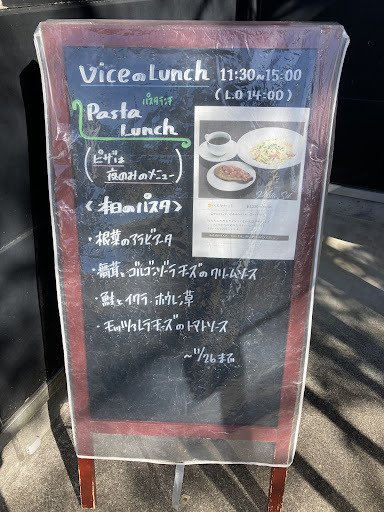 ViceのLunch 11:30~15:00
(L.O 14:00)
パスタランチ
Pasta
Lunch
(ピザは
夜のみのメニュー)
<本日のパスタ>
・根菜のアラビアータ
・舞茸とゴルゴンゾーラチーズのクリームソース
・鮭とイクラ、ホウレン草
・モッツァレラチーズのトマトソース
~11/26まで